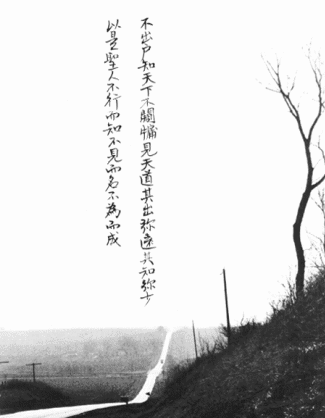 不出户知天下不闚牖見天道其出弥遠其知弥少
以是聖人不行而知不見而名不為而成